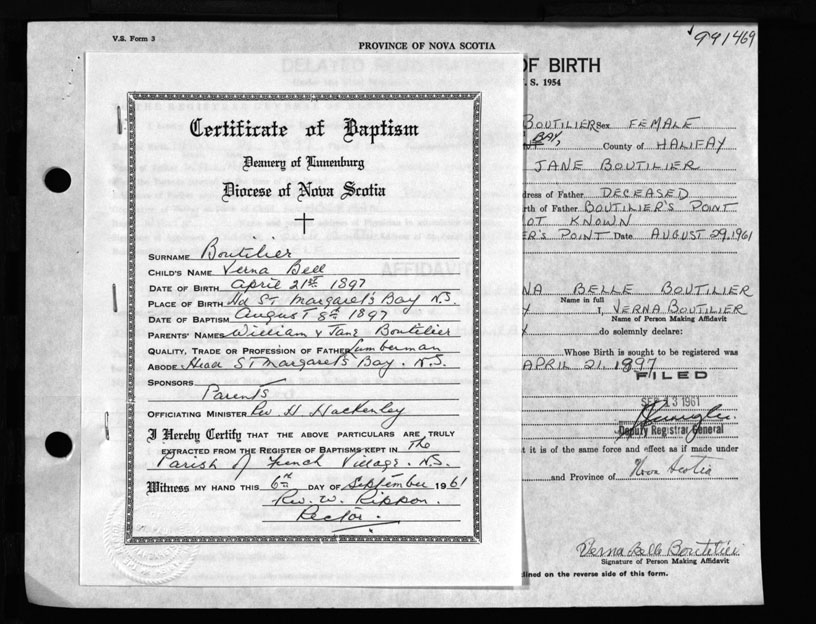 V.S. Form 3
991469
PROVINCE OF NOVA SCOTIA
Certificate of Baptism
Deanery of Lunenburg
Diocese of Nova Scotia
SURNAME Boutilier
CHILD'S NAME Verna Bell
DATE OF BIRTH April 21st 1897
PLACE OF BIRTH Hd St Margaret's Bay N.S.
DATE OF BAPTISM August 8th 1897
PARENTS' NAMES William & Jane Boutilier
QUALITY, TRADE OR PROFESSION OF FATHER Lumberman
ABODE Head St Margaret's Bay. N.S.
SPONSORS
Parents
OFFICIATING MINISTER Rev H Hackenley
I Hereby Certify THAT THE ABOVE PARTICULARS ARE TRULY
EXTRACTED FROM THE REGISTER OF BAPTISMS KEPT IN The
Parish of French Village. N.S.
Witness MY HAND THIS 6th DAY OF September 1961
Rev. W. Rippon.
Rector.
OF BIRTH
S. 1954
BOUTILIER Sex FEMALE
BAY, County of HALIFAX
JANE BOUTILIER
dress of Father DECEASED
rth of Father BOUTILIER'S POINT
OT KNOWN
ER'S POINT Date AUGUST 29, 1961
AFFIDAVIT
NA BELLE BOUTILIER
Name in full
I, VERNA BOUTILIER
Name of Person Making Affidavit
do solemnly declare:
Whose Birth is sought to be registered was
APRIL 21, 1897
FILED
SEP 13 1961
Deputy Registrar General
it is of the same force and effect as if made under
and Province of Nova Scotia
Verna Belle Boutilier
Signature of Person Making Affidavit
dlined on the reverse side of this form.